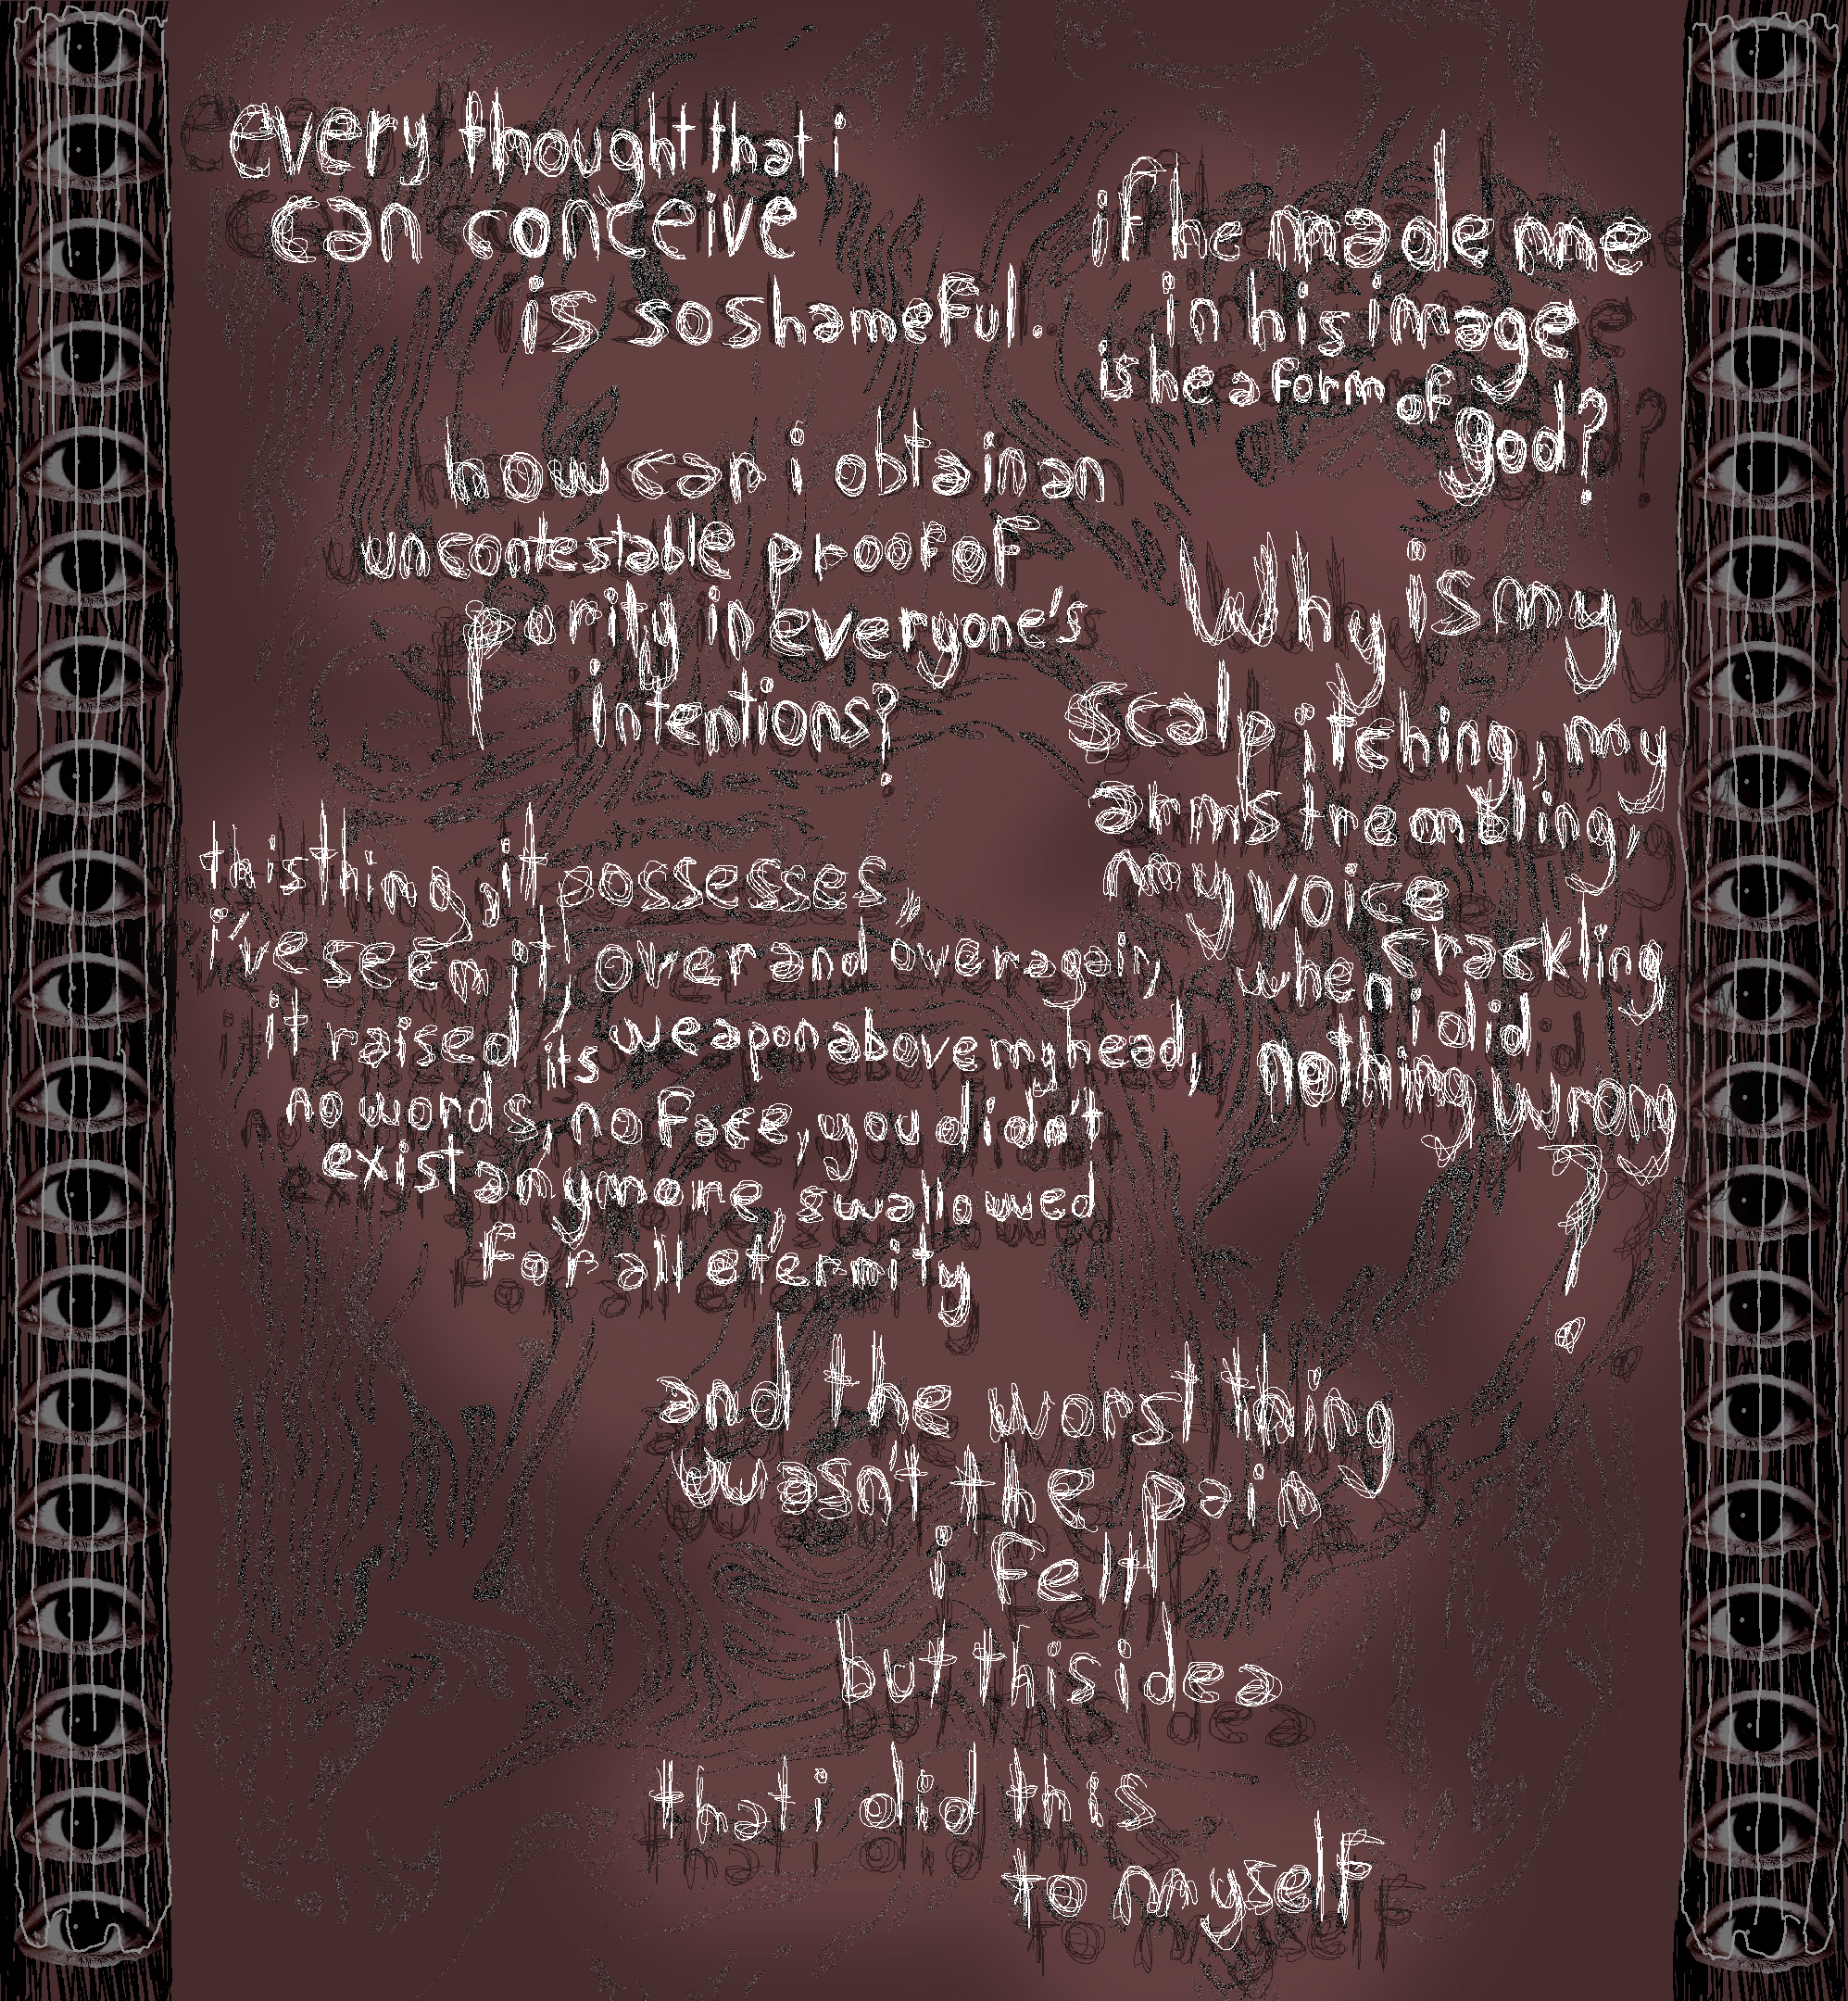 every thought that i
can conceive
is so shameful.
how can i obtain an
uncontestable proof of
purity in everyone's
intentions?
this thing, it possesses,
i've seen it, over and over again,
it raised its weapon above my head,
no words, no face, you didn't
exist anymore, swallowed
for all eternity
if he made me
in his image
is he a form of
god?
Why is my
scalp itching, my
arms trembling,
my voice
crackling
when i did
nothing wrong
?
and the worst thing
wasn't the pain
i felt
but this idea
that i did this
to myself